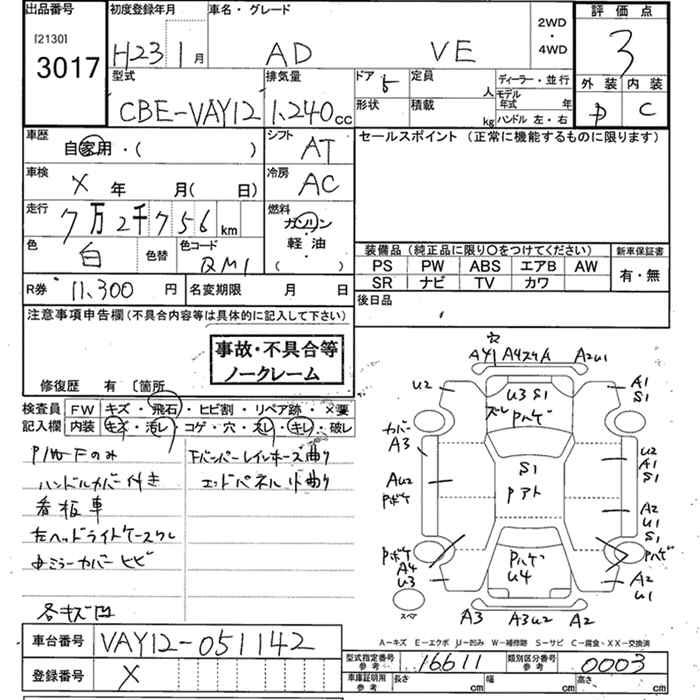 出品番号
[2130]
3017
初度登録年月
H23 1月
車名・グレード
AD VE
2WD
・
4WD
評価点
3
外装 内装
D C
型式
CBE-VAY12
排気量
1,240cc
ドア 5
形状
定員 人
積載 kg
ディーラー・並行
モデル年式 年
ハンドル 左・右
車歴
自家用・( )
シフト
AT
セールスポイント (正常に機能するものに限ります)
車検
X 年 月(日)
冷房
AC
走行
7万2千756km
燃料
ガソリン
軽油
( )
色
白
色替
色コード
QM1
装備品 (純正品に限り○をつけてください)
PS PW ABS エアB AW
SR ナビ TV カワ
新車保証書
有・無
R券 11,300円
名変期限 月 日
後日品
注意事項申告欄(不具合内容等は具体的に記入して下さい)
事故・不具合等
ノークレーム
修復歴 有 〔箇所
検査員
記入欄
FW キズ・飛石・ヒビ割・リペア跡・×要
内装 キズ・汚レ・コゲ・穴・スレ・キレ・破レ
P/W Fのみ
ハンドルカバー付き
看板車
左ヘッドライトケースワレ
ミラーカバーヒビ
各キズ凹
Fバンパーレインホース曲り
エンドパネル小曲り
穴
A4 A4スレA A2U1
U2
U3 S1
ズレ Pハゲ
A1
S1
カバー
A3
S1
Pアト
U2
A1
S1
AU2
Pボケ
A2
U1
S1
Pボケ
A4
U3
Pハゲ
U4
Pハゲ
A2
U1
スペア
A3 A3U2 A2
A－キズ E－エクボ U－凹み W－補修跡 S－サビ C－腐食、XX－交換済
車台番号 VAY12-051142
登録番号 X
型式指定番号
参考
16611
類別区分番号
参考
0003
車庫証明用
参考
長さ cm 幅 cm 高さ cm